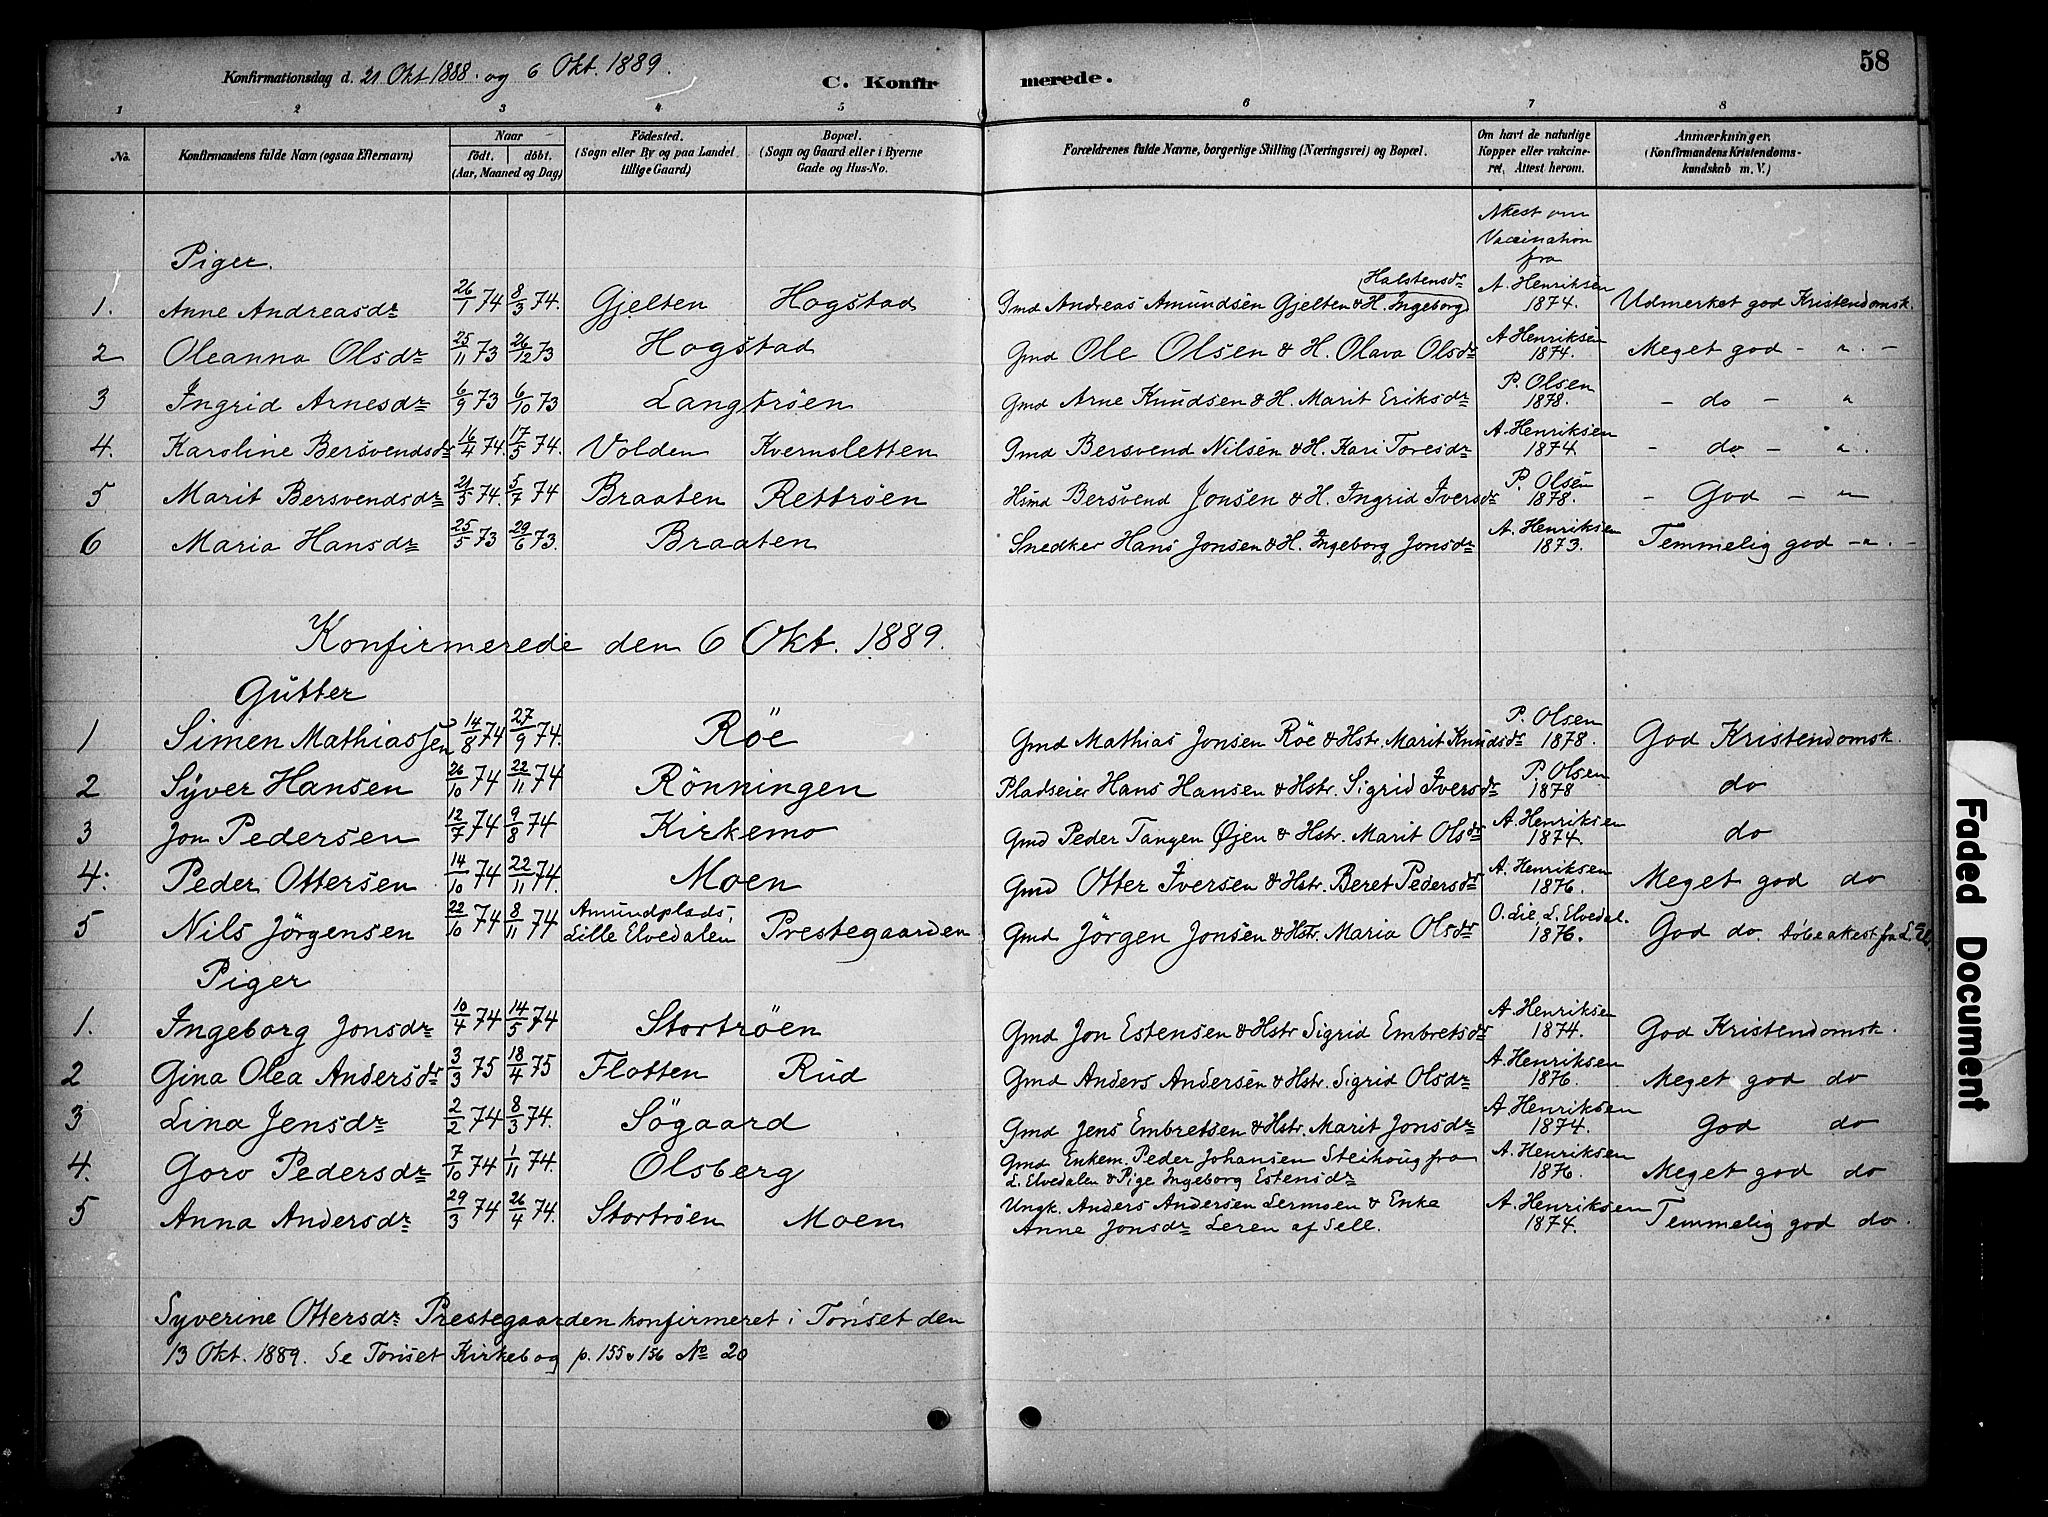 58
Konfirmationsdag d. 21 Okt 1888. og 6 Okt. 1889.
C. Konfirmerede.
1 2 3 4 5 6 7 8
No. Konfirmandens fulde Navn (ogsaa Efternavn) Naar födt. döbt. (Aar, Maaned og Dag) Födested. (Sogn eller By og paa Landet tillige Gaard) Bopæl. (Sogn og Gaard eller i Byerne Gade og Hus-No. Forældrenes fulde Navne, borgerlige Stilling (Næringsvei) og Bopæl. Om havt de naturlige Kopper eller vakcineret, Attest herom. Anmærkninger. (Konfirmandens Kristendomskundskab m. V.)
Attest om
Vaccination
fra
Piger.
1. Anne Andreasdr 26/1 74 8/3 74. Gjelten Hogstad Gmd Andreas Amundsen Gjelten & H. Ingeborg Halstensdr A. Henriksen 1874. Udmerket god Kristendomsk.
2 Oleanna Olsdr 25/11 73 26/12 73 Hogstad Gmd Ole Olsen & H. Olava Olsdr A Henriksen 1874. Meget god - " -
3 Ingrid Arnesdr 6/9 73 6/10 73 Langtröen Gmd Arne Knudsen & H. Marit Eriksdr P. Olsen 1878. - do - "
4. Karoline Bersvendsdr 16/4 74. 17/5 74. Volden Kvernsletten Gmd Bersvend Nilsen & H. Kari Toresdr A. Henriksen 1874 - do - " .
5 Marit Bersvendsdr 21/5 74. 5/7 74 Braaten Rettröen Hsmd Bersvend Jonsen & H. Ingrid Iversdr P. Olsen 1878. - God - "
6 Maria Hansdr 25/5 73 29/6 73. Braaten Snedker Hans Jonsen & H. Ingeborg Jonsdr A. Henriksen 1873. Temmelig god - " . -
Konfirmerede den 6 Okt. 1889.
Gutter
1 Simen Mathiassen 14/8 74 27/9 74. Röe Gmd Mathias Jonsen Röe & Hstr. Marit Knudsdr P. Olsen 1878. God Kristendomsk.
2 Syver Hansen 26/10 74 22/11 74 Rönningen Pladseier Hans Hansen & Hstr. Sigrid Iversdr P. Olsen 1878 do
3 Jon Pedersen 12/7 74 9/8 74 Kirkemo Gmd Peder Tangen Øjen & Hstr. Marit Olsdr A. Henriksen 1874. do
4. Peder Ottersen 14/10 74 22/11 74. Moen Gmd Otter Iversen & Hstr. Beret Pedersdr A. Henriksen 1876. Meget god do
5 Nils Jörgensen 22/10 74 8/11 74 Amundplads, Lille Elvedalen Prestegaarden Gmd Jörgen Jonsen & Hstr. Maria Olsdr O. Lie L. Elvedal. 1876. God do. Döbeattest fra L. El.
Piger
1. Ingeborg Jonsdr 10/4 74 14/5 74 Stortröen Gmd Jon Estensen & Hstr Sigrid Embretsdr A Henriksen 1874. God Kristendomsk.
2 Gina Olea Andersdr 3/3 75 18/4 75 Flotten Rud Gmd Anders Andersen & Hstr. Sigrid Olsdr A. Henriksen 1876. Meget god do
3 Lina Jensdr 2/2 74 8/3 74. Sögaard Gmd Jens Embretsen & Hstr. Marit Jonsdr A Henriksen 1874. God do
4. Goro Pedersdr 7/10 74 1/11 74. Olsberg Gmd Enkem. Peder Johansen Steihoug fra L. Elvedalen & Pige Ingeborg Estensdr A. Henriksen 1876. Meget god do
5 Anna Andersdr 29/3 74 26/4 74. Stortröen Moen Ungk. Anders Andersen Lermoen & Enke Anne Jonsdr Leren af Sell. A. Henriksen 1874. Temmelig god do.
Syverine Ottersdr Prestegaarden konfirmeret i Tönset den
13 Okt. 1889. Se Tönset Kirkebog p. 155 & 156 No 20
Faded Document